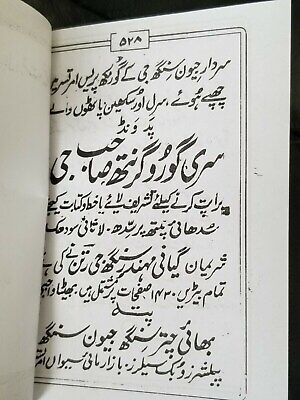 ۵۲۸
سردار جیون سنگھ جی کے گورمکھ پریس امرتسر
چھپے ہوئے، سرل اور سکھین پاٹھوں والے
پد ونڈ
سری گورو گرنتھ صاحب جی
پراپت کرنے کیلئے تشریف لائیے یا خط و کتابت کیجئے
سدھائی پنتھ پرسدھ، لاثانی سودھک
شریمان گیانی مہندر سنگھ جی رتن نے کی ہے
تمام بیڑیں ۱۴۳۰ صفحات پر مشتمل ہیں۔ بھیٹا واجبی
پتہ
بھائی چتر سنگھ جیون سنگھ
پبلشرز و بک سیلرز، بازار مائی سیواں امرتسر